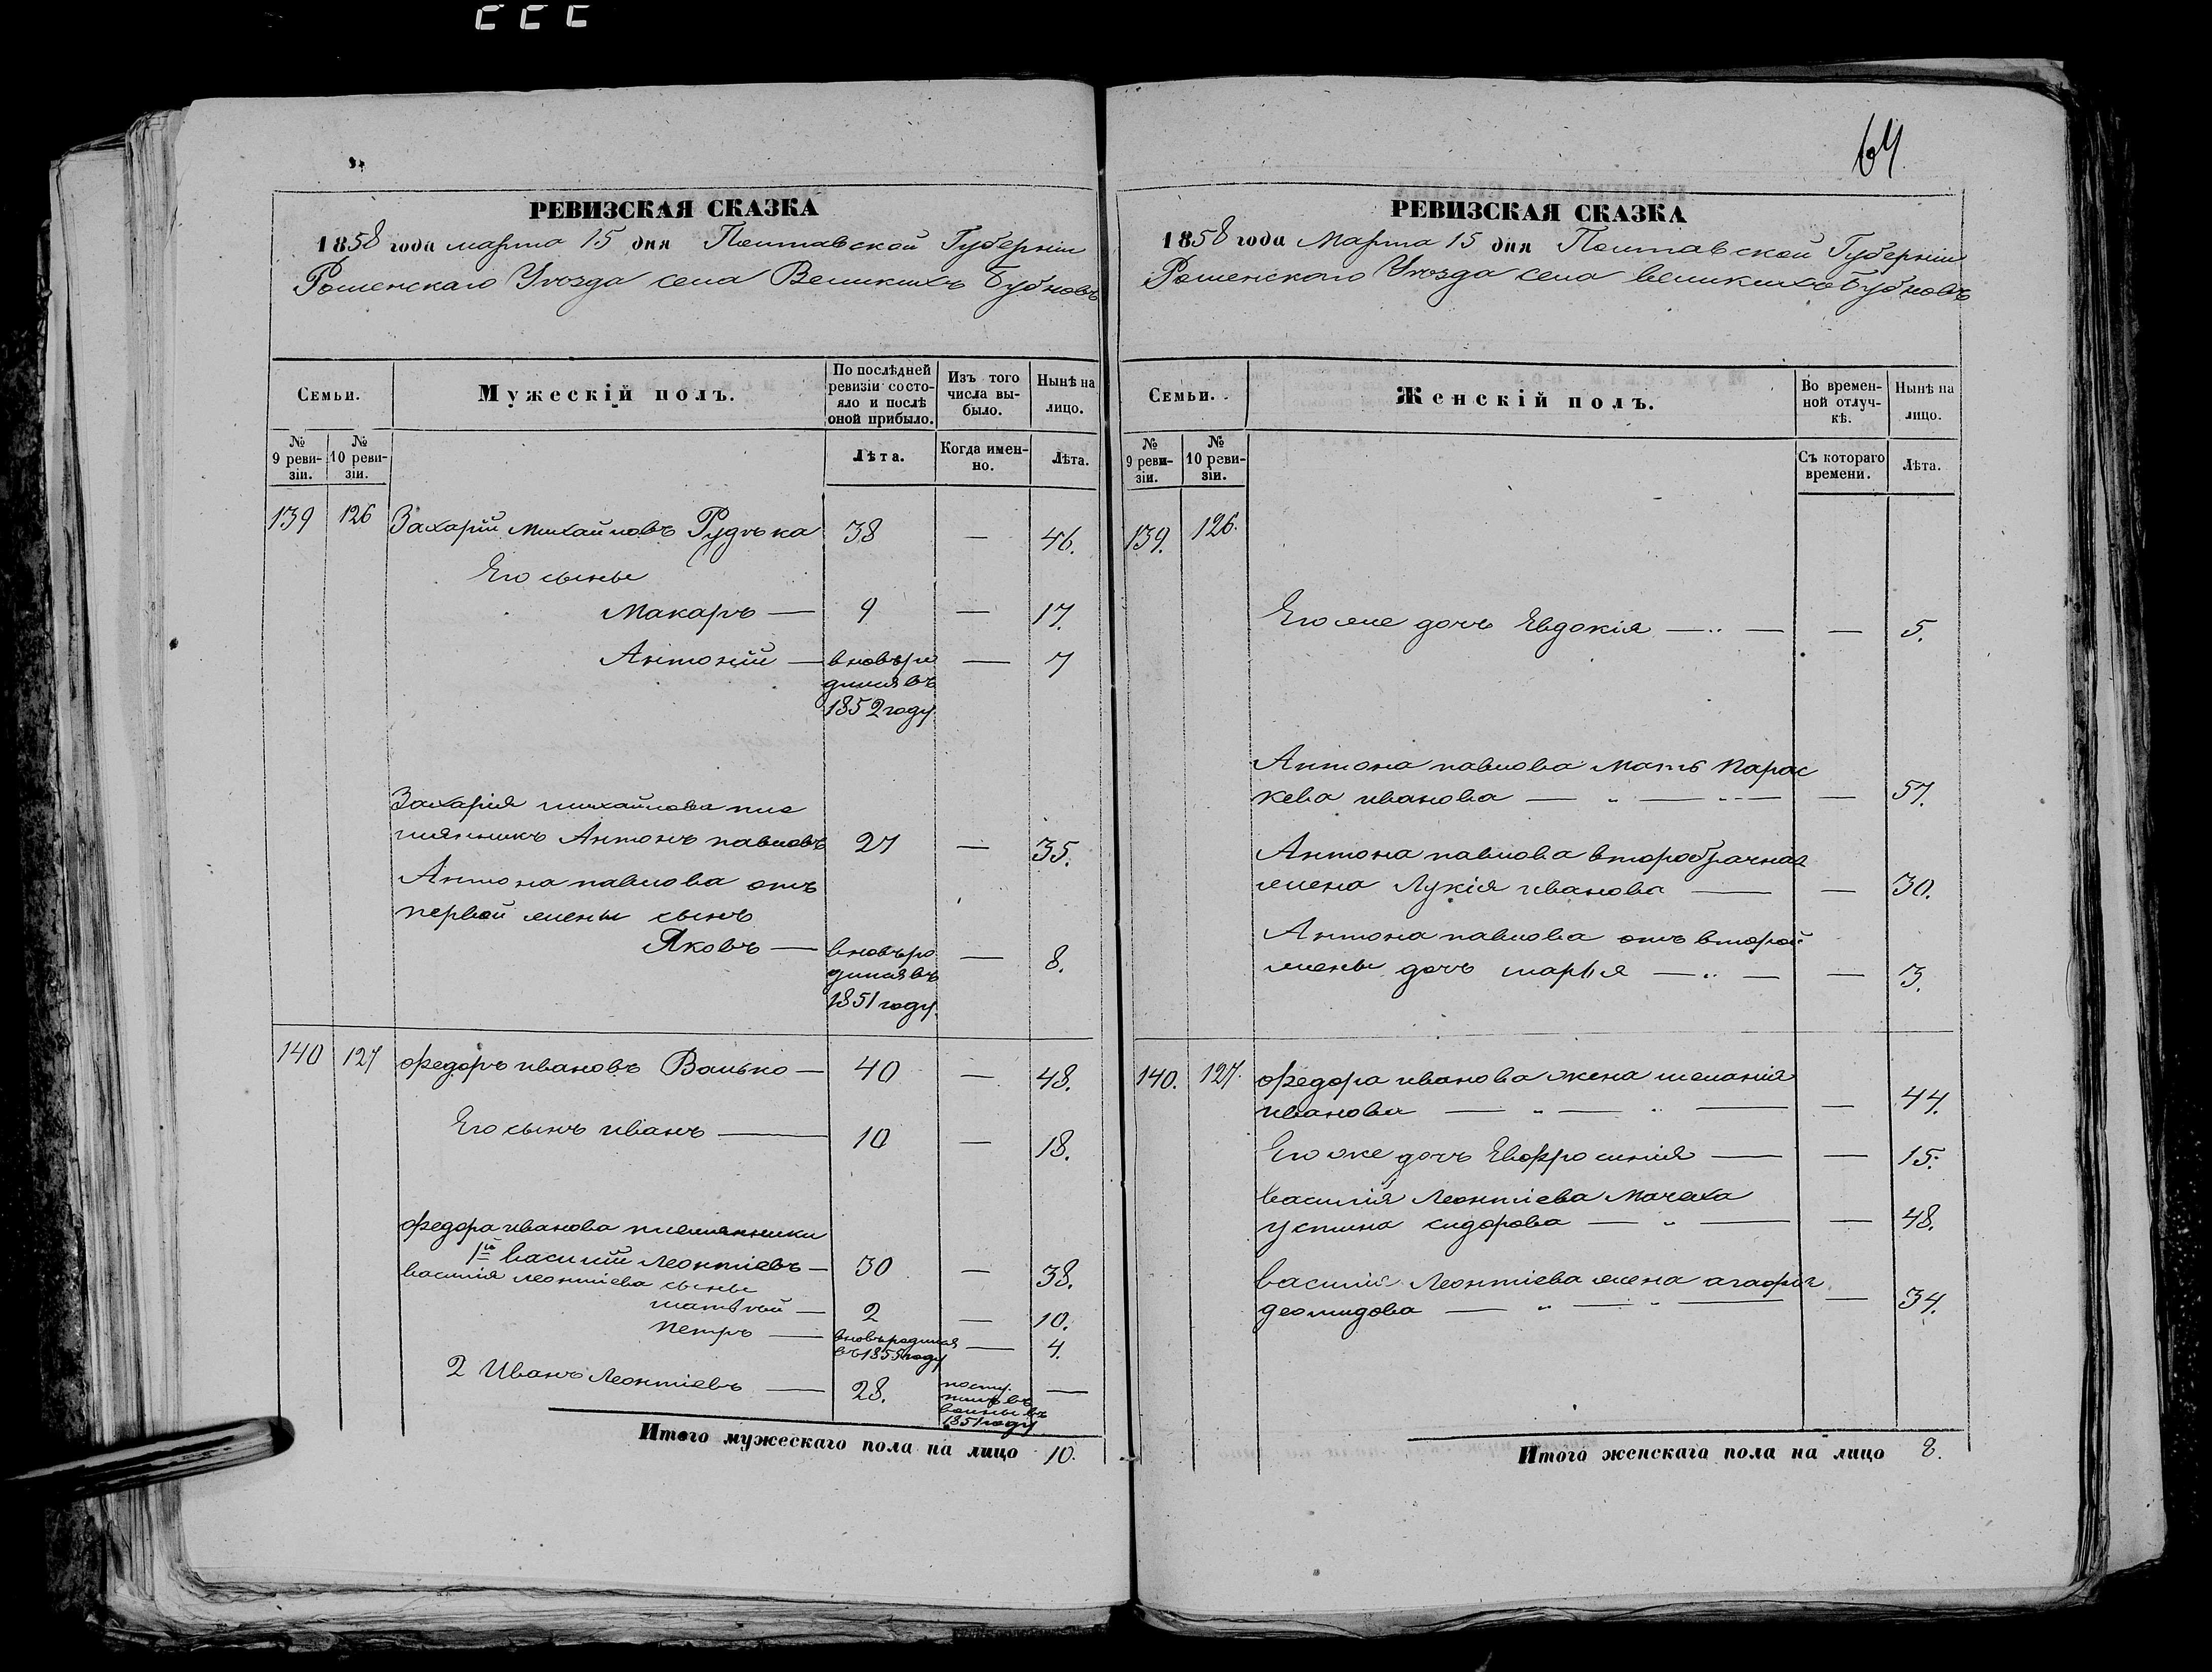 64
РЕВИЗСКАЯ СКАЗКА
1858 года марта 15 дня Полтавской Губерніи
Роменскаго Уѣзда села Великихъ Бубновъ
Семьи.
Мужескій полъ.
По послѣдней ревизіи состояло и послѣ оной прибыло.
Изъ того числа выбыло.
Нынѣ на лицо.
№ 9 ревизіи.
№ 10 ревизіи.
Лѣта.
Когда именно.
Лѣта.
139 126 Захарій Михайловъ Рудъка 38 — 46.
Его сыны
Макаръ — 9 — 17.
Антоній — вновь ро — 7
дился въ
1852 году.
Захарія михайлова пле
мянникъ Антонъ павловъ 27 — 35.
Антона павлова отъ
первой жены сынъ
Яковъ — вновь ро — 8.
дился въ
1851 году.
140 127 Федоръ ивановъ Валько — 40 — 48.
Его сынъ иванъ — 10 — 18.
Федора иванова племянники
1й василій Леонтіевъ — 30 — 38.
василія леонтіева сыны
матвѣй — 2 — 10.
петръ — вновь родился — 4.
въ 1855 году
2 Иванъ Леонтіевъ — 28. посту —
пилъ въ
воины въ
1851 году
Итого мужескаго пола на лицо 10.
РЕВИЗСКАЯ СКАЗКА
1858 года Марта 15 дня Полтавской Губерніи
Роменскаго Уѣзда села великихъ Бубновъ
Семьи.
Женскій полъ.
Во временной отлучкѣ.
Нынѣ на лицо.
№ 9 ревизіи.
№ 10 ревизіи.
Съ котораго времени.
Лѣта.
139. 126.
Его же дочь Евдокія — „ — — 5.
Антона павлова мать Парас
кева иванова — „ — „ — — 57.
Антона павлова второбрачная
жена Лукія иванова — — 30.
Антона павлова отъ второй
жены дочь марья — „ — — 3.
140. 127. Федора иванова жена мелания
иванова — „ — „ — — 44.
Его же дочь Евфросинія — — 15.
василія Леонтіева мачеха
устина сидорова — „ — — 48.
василія Леонтіева жена агафія
деомидова — „ — „ — — 34.
Итого женскаго пола на лицо 8.